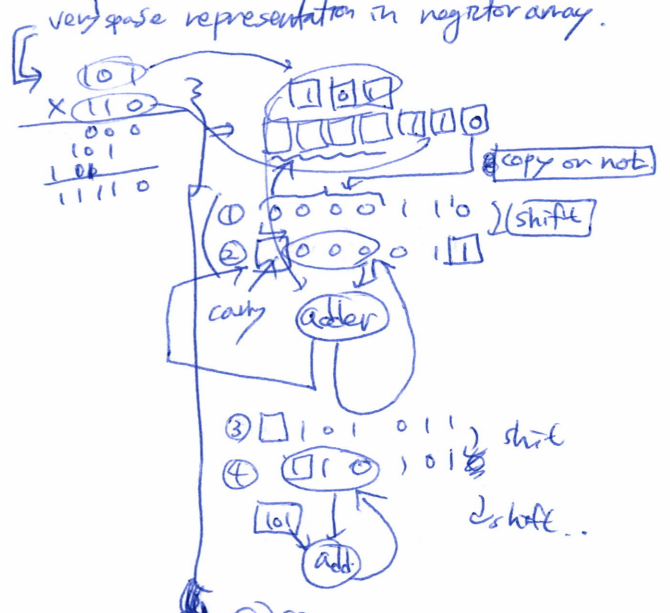 very spase representation in registor array.
101
X 110
000
101
101
11110
1 0 1
1 1 0
copy or not
① 0 0 0 0 1 1 0
shift
② 0 0 0 0 1 1
carry
adder
③ 1 0 1 0 1 1
shit
④ 1 1 0 1 0 1
shift..
101
add